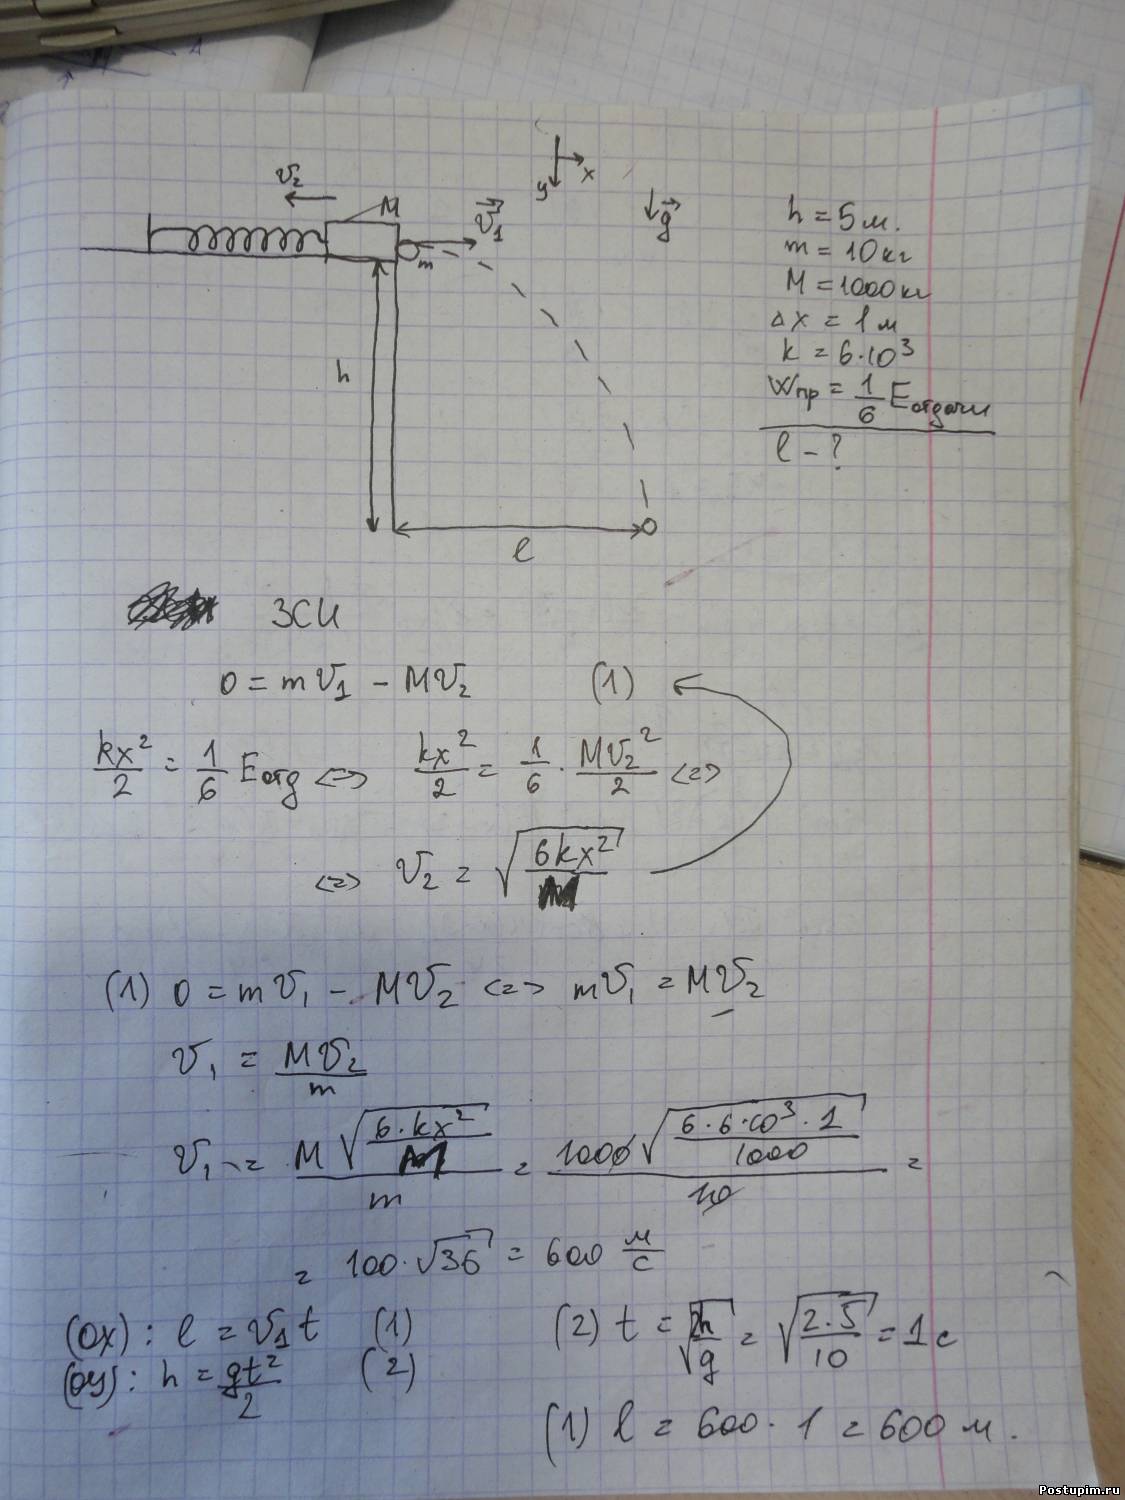 v₂
M
v⃗₁
m
y
x
g⃗
h
l
h = 5 м.
m = 10 кг
M = 1000 кг
Δx = 1 м
k = 6·10³
Wпр = 1/6 Eотдачи
l - ?
ЗСИ
0 = mv₁ - Mv₂ (1)
kx²/2 = 1/6 Eотд <=> kx²/2 = 1/6 · Mv₂²/2 <=>
<=> v₂ = √(6kx²/M)
(1) 0 = mv₁ - Mv₂ <=> mv₁ = Mv₂
v₁ = Mv₂/m
v₁ = M√(6·kx²/M)/m = 1000√(6·6·10³·1/1000)/10 =
= 100·√36 = 600 м/с
(Ox): l = v₁t (1)
(Oy): h = gt²/2 (2)
(2) t = √(2h/g) = √(2·5/10) = 1 с
(1) l = 600·1 = 600 м.
Postupim.ru